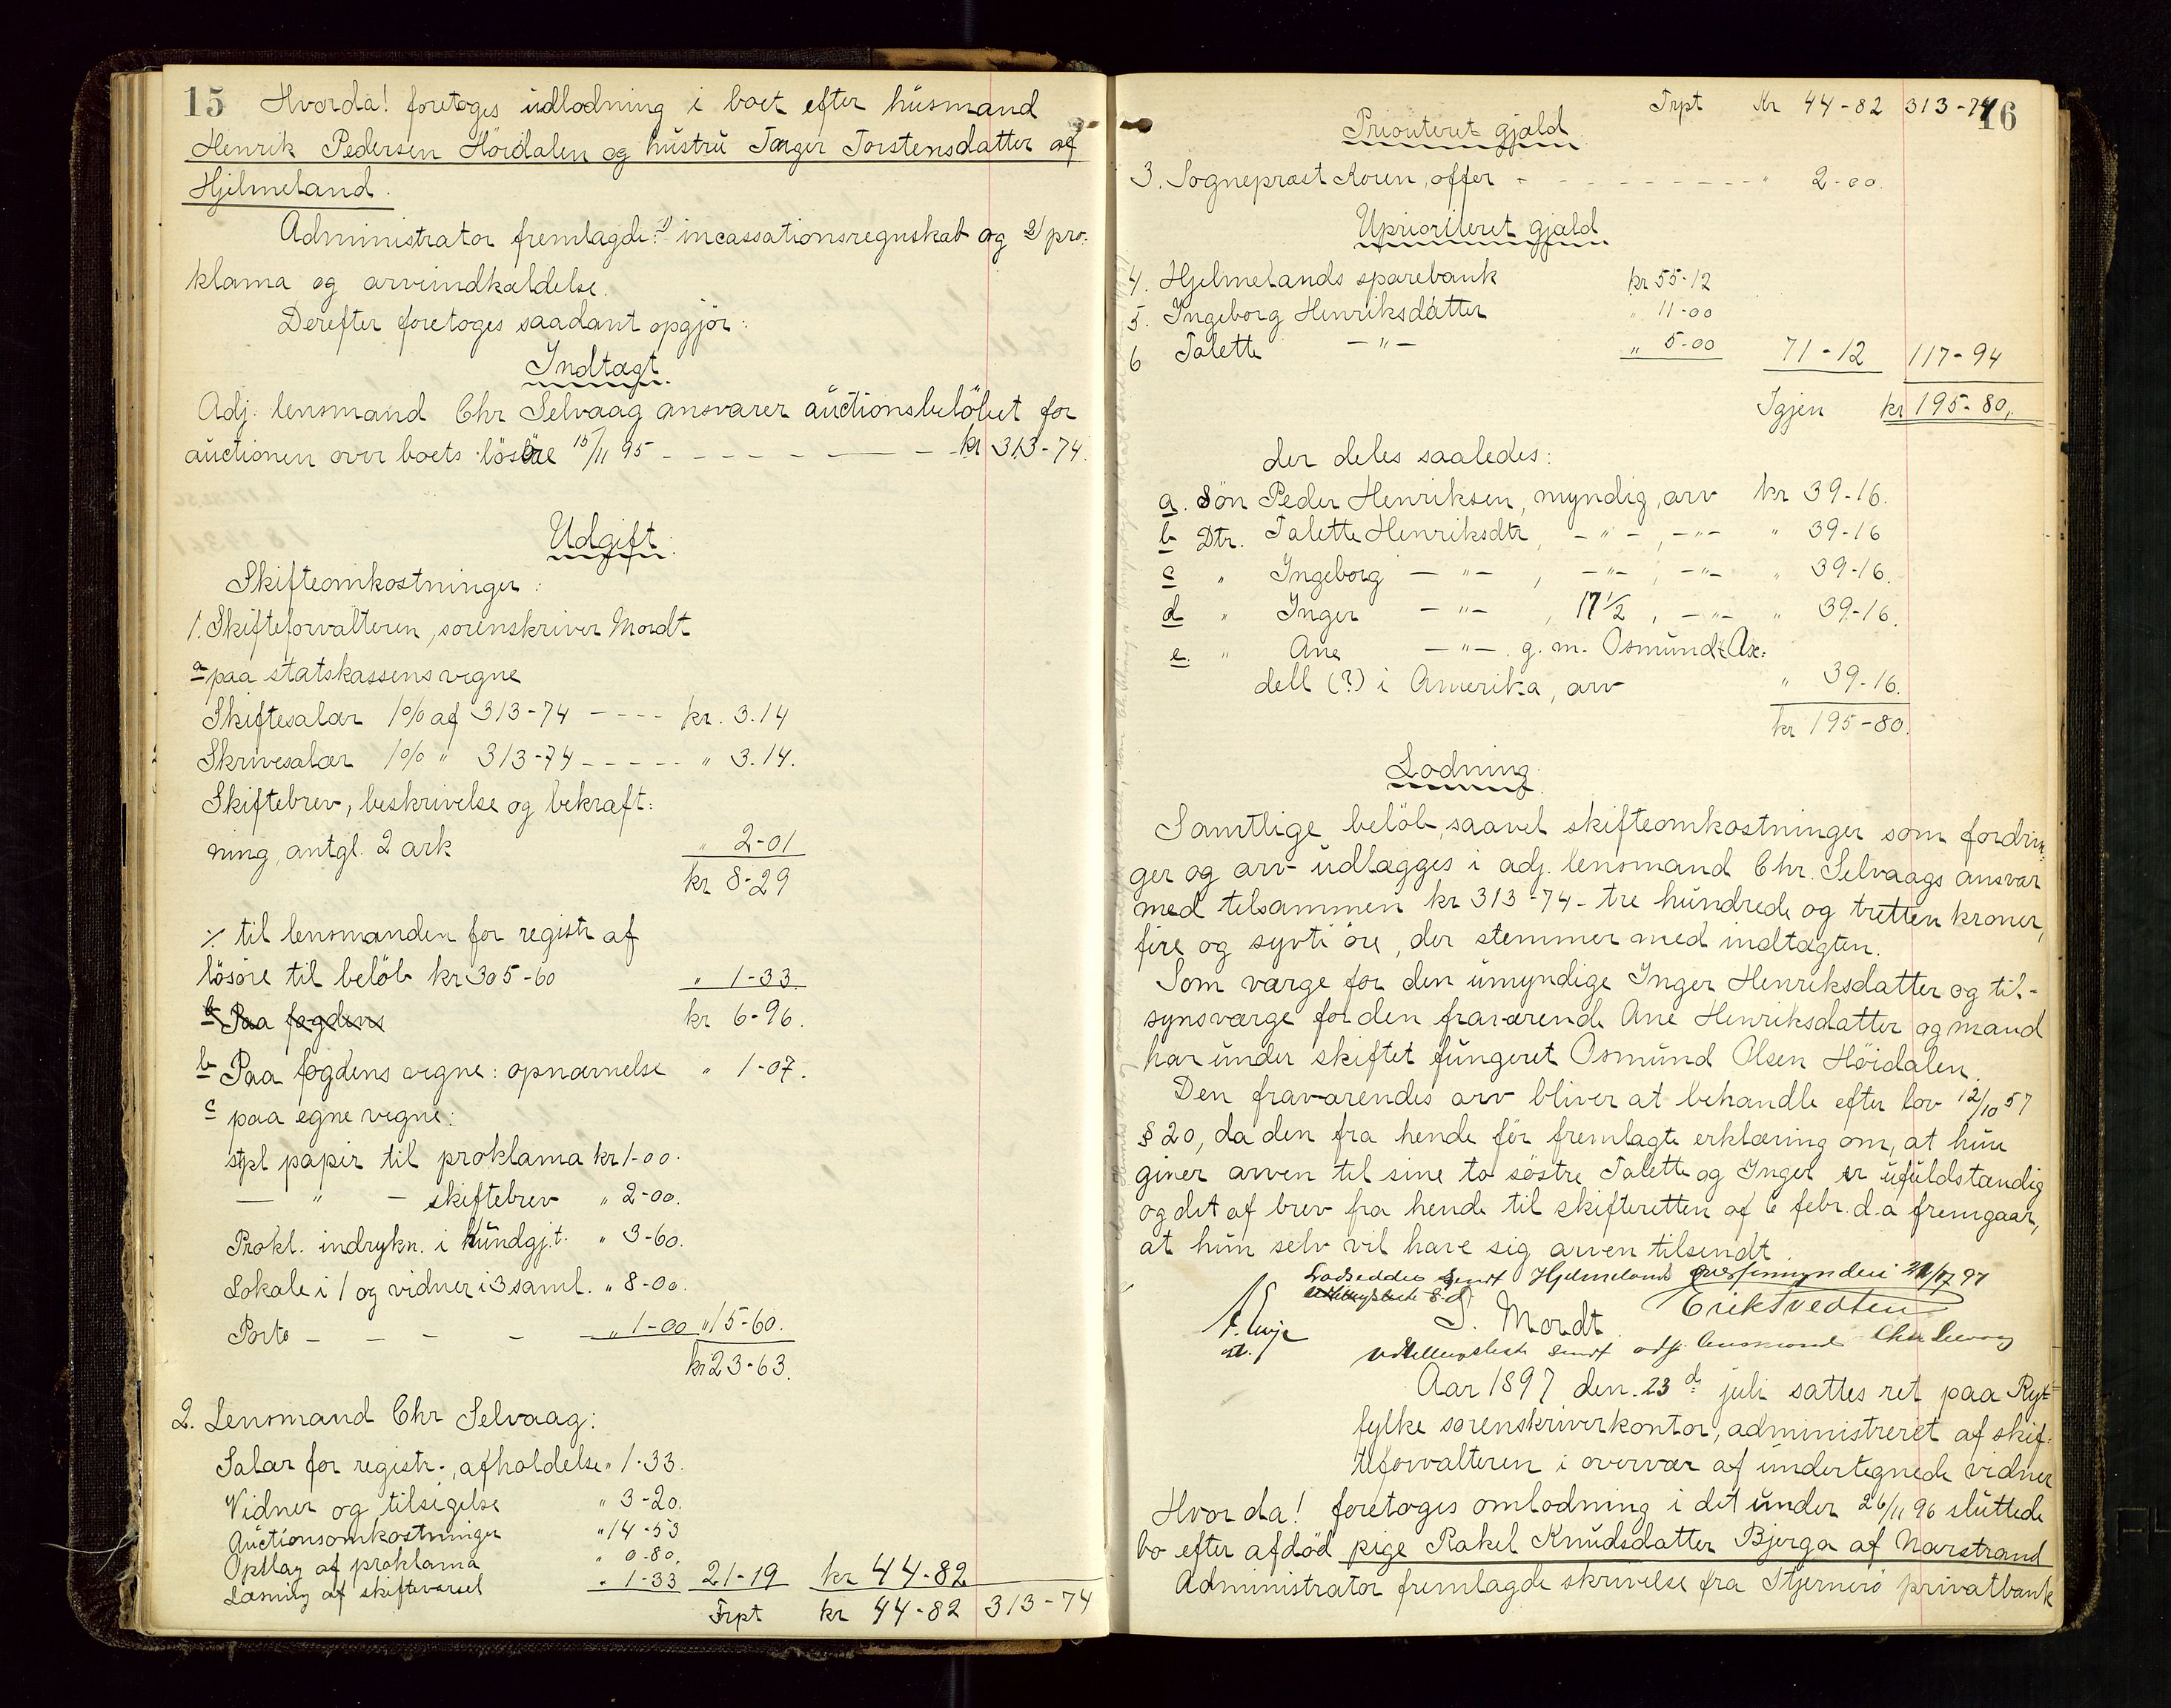 15 Hvorda! foretoges udlodning i boet efter husmand
Henrik Pedersen Höidalen og hustru Torger Torstensdatter af
Hjelmeland.
Administrator fremlagde: 1) incassationsregnskab og 2) pro-
klama og arveindkaldelse.
Derefter foretoges saadant opgjör:
Indtægt.
Adj. lensmand Chr Selvaag ansvarer auctionsbelöbet for
auctionen over boets lösöre 15/11 95 - - - - - - - - kr 313-74.
Udgift:
Skifteomkostninger:
1. Skifteforvalteren, sorenskriver Mordt
a paa statskassens vegne
Skiftesalær 1% af 313-74 - - - - kr. 3.14
Skrivesalær 1% " 313-74 - - - - - " 3.14.
Skiftebrev, beskrivelse og bekræft-
ning, antgl. 2 ark " 2-01
kr 8-29
÷ til lensmanden for registr af
lösöre til belöb kr 305-60 " 1-33
b Paa fogdens kr 6-96.
b Paa fogdens vegne: opnævnelse " 1-07.
c paa egne vegne:
stpl papir til proklama kr 1-00.
— " — skiftebrev " 2-00.
Prokl. indrykn. i kundgj.t. " 3-60.
Lokale i 1 og vidner i 3 saml. " 8-00.
Porto - - - - - " 1-00 " 15-60.
kr 23-63.
2. Lensmand Chr Selvaag:
Salær for registr., afholdelse " 1-33.
Vidner og tilsigelse " 3-20.
Auctionsomkostninger " 14-53
Opslag af proklama " 0-80.
Læsning af skiftevarsel " 1-33 21-19 kr 44-82
Trpt kr 44-82 313-74
Trpt Kr 44-82 313-74 16
Prioriteret gjæld
3. Sogneprest Koren, offer - - - - - - - - - " 2-00.
Uprioriteret gjæld
4. Hjelmelands sparebank kr 55-12
5. Ingeborg Henriksdatter " 11-00
6 Talette — " — " 5-00 71-12 117-94
Igjen kr 195-80,
der deles saaledes:
a. Sön Peder Henriksen, myndig, arv kr 39-16.
b Dtr. Talette Henriksdtr, - " -, - " - " 39-16
c " Ingeborg — " —, — " —, — " — " 39-16.
d " Inger — " —, 17 1/2, — " — " 39-16.
e. " Ane — " — g. m. Osmund Ax-
dell (?) i Amerika, arv " 39-16.
kr 195-80.
Lodning.
Samtlige belöb, saavel skifteomkostninger som fordrin-
ger og arv udlægges i adj. lensmand Chr. Selvaags ansvar
med tilsammen kr 313-74 - tre hundrede og tretten kroner,
fire og syvti öre, der stemmer med indtægten.
Som værge for den umyndige Inger Henriksdatter og til-
synsværge for den fraværende Ane Henriksdatter og mand
har under skiftet fungeret Osmund Olsen Höidalen.
Den fraværendes arv bliver at behandle efter lov 12/10 57
§ 20, da den fra hende för fremlagte erklæring om, at hun
giver arven til sine to söstre Talette og Inger er ufuldstændig
og det af brev fra hende til skifteretten af 6 febr. d.a fremgaar,
at hun selv vil have sig arven tilsendt.
Lodseddel sendt Hjelmelands overformynderi 21/7 97
S. Mordt. Erik Tvedten
Udstillingsliste sendt adj. lensmand Chr Selvaag
Aar 1897 den 23de juli sattes ret paa Ry-
fylke sorenskriverkontor, administreret af skif-
teforvalteren i overvær af undertegnede vidner
Hvor da! foretoges omlodning i det under 26/11 96 sluttede
bo efter afdöd pige Rakel Knudsdatter Bjerga af Narstrand
Administrator fremlagde skrivelse fra Stjernerö privatbank